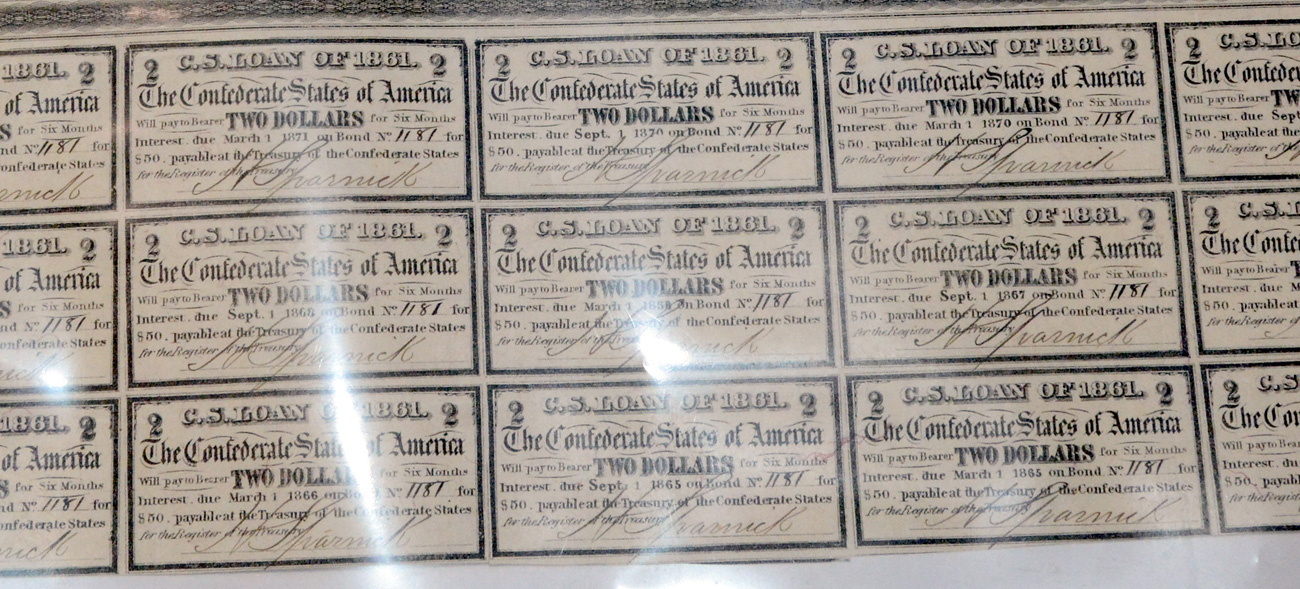 1861. 2
of America
for Six Months
nd Nº 1181 for
onfederate States
2 C.S. LOAN OF 1861. 2
The Confederate States of America
Will pay to Bearer TWO DOLLARS for Six Months
Interest. due March 1 1871 on Bond Nº 1181 for
$50. payable at the Treasury of the Confederate States
for the Register of the Treasury
2 C.S. LOAN OF 1861. 2
The Confederate States of America
Will pay to Bearer TWO DOLLARS for Six Months
Interest. due Sept. 1 1870 on Bond Nº 1181 for
$50. payable at the Treasury of the Confederate States
for the Register of the Treasury
2 C.S. LOAN OF 1861. 2
The Confederate States of America
Will pay to Bearer TWO DOLLARS for Six Months
Interest. due March 1 1870 on Bond Nº 1181 for
$50. payable at the Treasury of the Confederate States
for the Register of the Treasury
2 C.S. LO
The Confeder
Will pay to Bearer TW
Interest. due Sept
$50. payable at the
for the Register of the
1861. 2
of America
for Six Months
nd Nº 1181 for
onfederate States
2 C.S. LOAN OF 1861. 2
The Confederate States of America
Will pay to Bearer TWO DOLLARS for Six Months
Interest. due Sept. 1 1868 on Bond Nº 1181 for
$50. payable at the Treasury of the Confederate States
for the Register of the Treasury
2 C.S. LOAN OF 1861. 2
The Confederate States of America
Will pay to Bearer TWO DOLLARS for Six Months
Interest. due March 1 1868 on Bond Nº 1181 for
$50. payable at the Treasury of the Confederate States
for the Register of the Treasury
2 C.S. LOAN OF 1861. 2
The Confederate States of America
Will pay to Bearer TWO DOLLARS for Six Months
Interest. due Sept. 1 1867 on Bond Nº 1181 for
$50. payable at the Treasury of the Confederate States
for the Register of the Treasury
2 C.S. L
The Confe
Will pay to Bearer
Interest. due M
$50. payable at
for the Register of
1861. 2
of America
for Six Months
nd Nº 1181 for
onfederate States
2 C.S. LOAN OF 1861. 2
The Confederate States of America
Will pay to Bearer TWO DOLLARS for Six Months
Interest. due March 1 1866 on Bond Nº 1181 for
$50. payable at the Treasury of the Confederate States
for the Register of the Treasury
2 C.S. LOAN OF 1861. 2
The Confederate States of America
Will pay to Bearer TWO DOLLARS for Six Months
Interest. due Sept. 1 1865 on Bond Nº 1181 for
$50. payable at the Treasury of the Confederate States
for the Register of the Treasury
2 C.S. LOAN OF 1861. 2
The Confederate States of America
Will pay to Bearer TWO DOLLARS for Six Months
Interest. due March 1 1865 on Bond Nº 1181 for
$50. payable at the Treasury of the Confederate States
for the Register of the Treasury
2 C.S
The Con
Will pay to Bear
Interest. due
$50. payable
for the Register